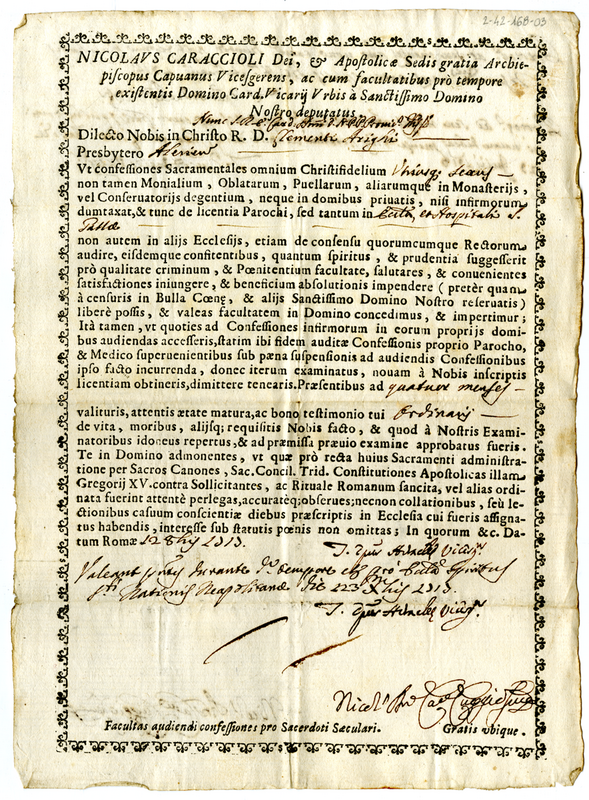 2-42-168-03
NICOLAVS CARACCIOLI Dei, & Apostolicæ Sedis gratia Archie-
piscopus Capuanus Vicesgerens, ac cum facultatibus prò tempore
existentis Domino Card. Vicarij Vrbis à Sanctissimo Domino
Nostro deputatus.
Dilecto Nobis in Christo R. D. Clementi Arighi
Presbytero
Vt confessiones Sacramentales omnium Christifidelium Vtriusq; sexus
non tamen Monialium, Oblatarum, Puellarum, aliarumque in Monasterijs,
vel Conseruatorijs degentium, neque in domibus priuatis, nisi infirmorum
dumtaxat, & tunc de licentia Parochi, sed tantum in et Hospitalis S.
non autem in alijs Ecclesijs, etiam de consensu quorumcumque Rectorum
audire, eisdemque confitentibus, quantum spiritus, & prudentia suggesserit
prò qualitate criminum, & Pœnitentium facultate, salutares, & conuenientes
satisfactiones iniungere, & beneficium absolutionis impendere (pretèr quam
à censuris in Bulla Cœnę, & alijs Sanctissimo Domino Nostro reseruatis)
liberè possis, & valeas facultatem in Domino concedimus, & impertimur;
Ità tamen, vt quoties ad Confessiones infirmorum in eorum proprijs domi-
bus audiendas accesseris, statim ibi fidem auditæ Confessionis proprio Parocho,
& Medico superuenientibus sub pœna suspensionis ad audiendis Confessionibus
ipso facto incurrenda, donec iterum examinatus, nouam à Nobis inscriptis
licentiam obtineris, dimittere tenearis. Præsentibus ad quatuor menses
valituris, attentis ætate matura, ac bono testimonio tui Ordinarij
de vita, moribus, alijsq; requisitis Nobis facto, & quod à Nostris Exami-
natoribus idoneus repertus, & ad præmissa præuio examine approbatus fueris.
Te in Domino admonentes, vt quæ prò recta huius Sacramenti administra-
tione per Sacros Canones, Sac. Concil. Trid. Constitutiones Apostolicas illam
Gregorij XV. contra Sollicitantes, ac Rituale Romanum sancita, vel alias ordi-
nata fuerint attentè perlegas, accuratèq; obserues; necnon collationibus, seù le-
ctionibus casuum conscientiæ diebus præscriptis in Ecclesia cui fueris assigna-
tus habendis, interesse sub statutis pœnis non omittas; In quorum &c. Da-
tum Romæ
Valeant durante tempore et pro
Nationis Neapolitanæ die
Facultas audiendi confessiones pro Sacerdoti Sæculari. Gratis vbique.